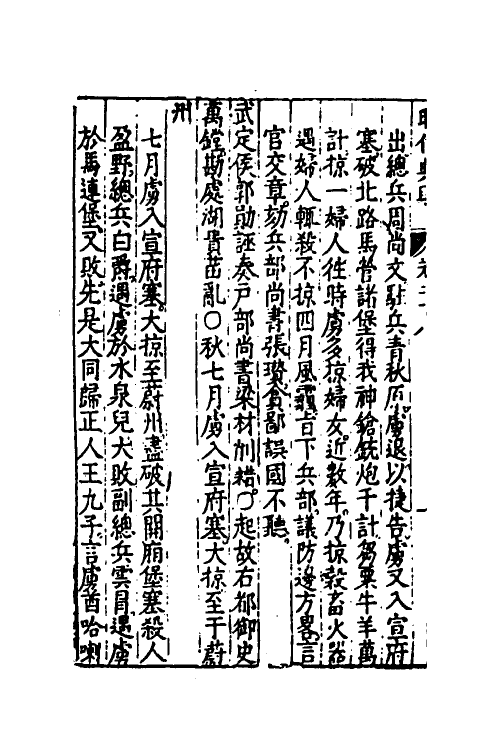 出總兵周尚文駐兵青秋原虜退以捷告虜又入宣府
塞破北路馬營諸堡得我神鎗銃炮千計芻粟牛羊萬
計掠一婦人徃時虜多掠婦女近數年乃掠穀畜火器
遇婦人輒殺不掠四月風霾旨下兵部議防邊方畧言
官交章劾兵部尚書張瓚貪鄙誤國不聽
武定侯郭勛誣奏戸部尚書梁材削籍○起故右都御史
萬鏜勘處湖貴苗亂○秋七月虜入宣府塞大掠至于蔚
州
七月虜入宣府塞大掠至蔚州盡破其關廂堡塞殺人
盈野總兵白爵遇虜於水泉兒大敗副總兵雲冐遇虜
於馬連堡又敗先是大同歸正人王九子言虜酋哈喇